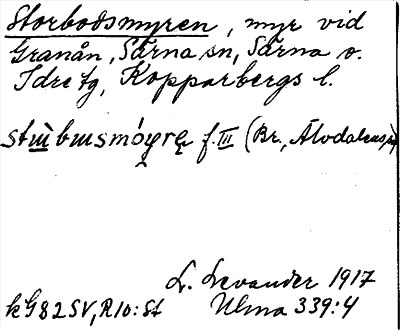 Storbodsmyren, myr vid
Granån, Särna sn, Särna o.
Idre tg, Kopparbergs l.
f. III (Br., Älvdalens
L. Levander 1917
kG82SV, R10:St Ulma 339:4